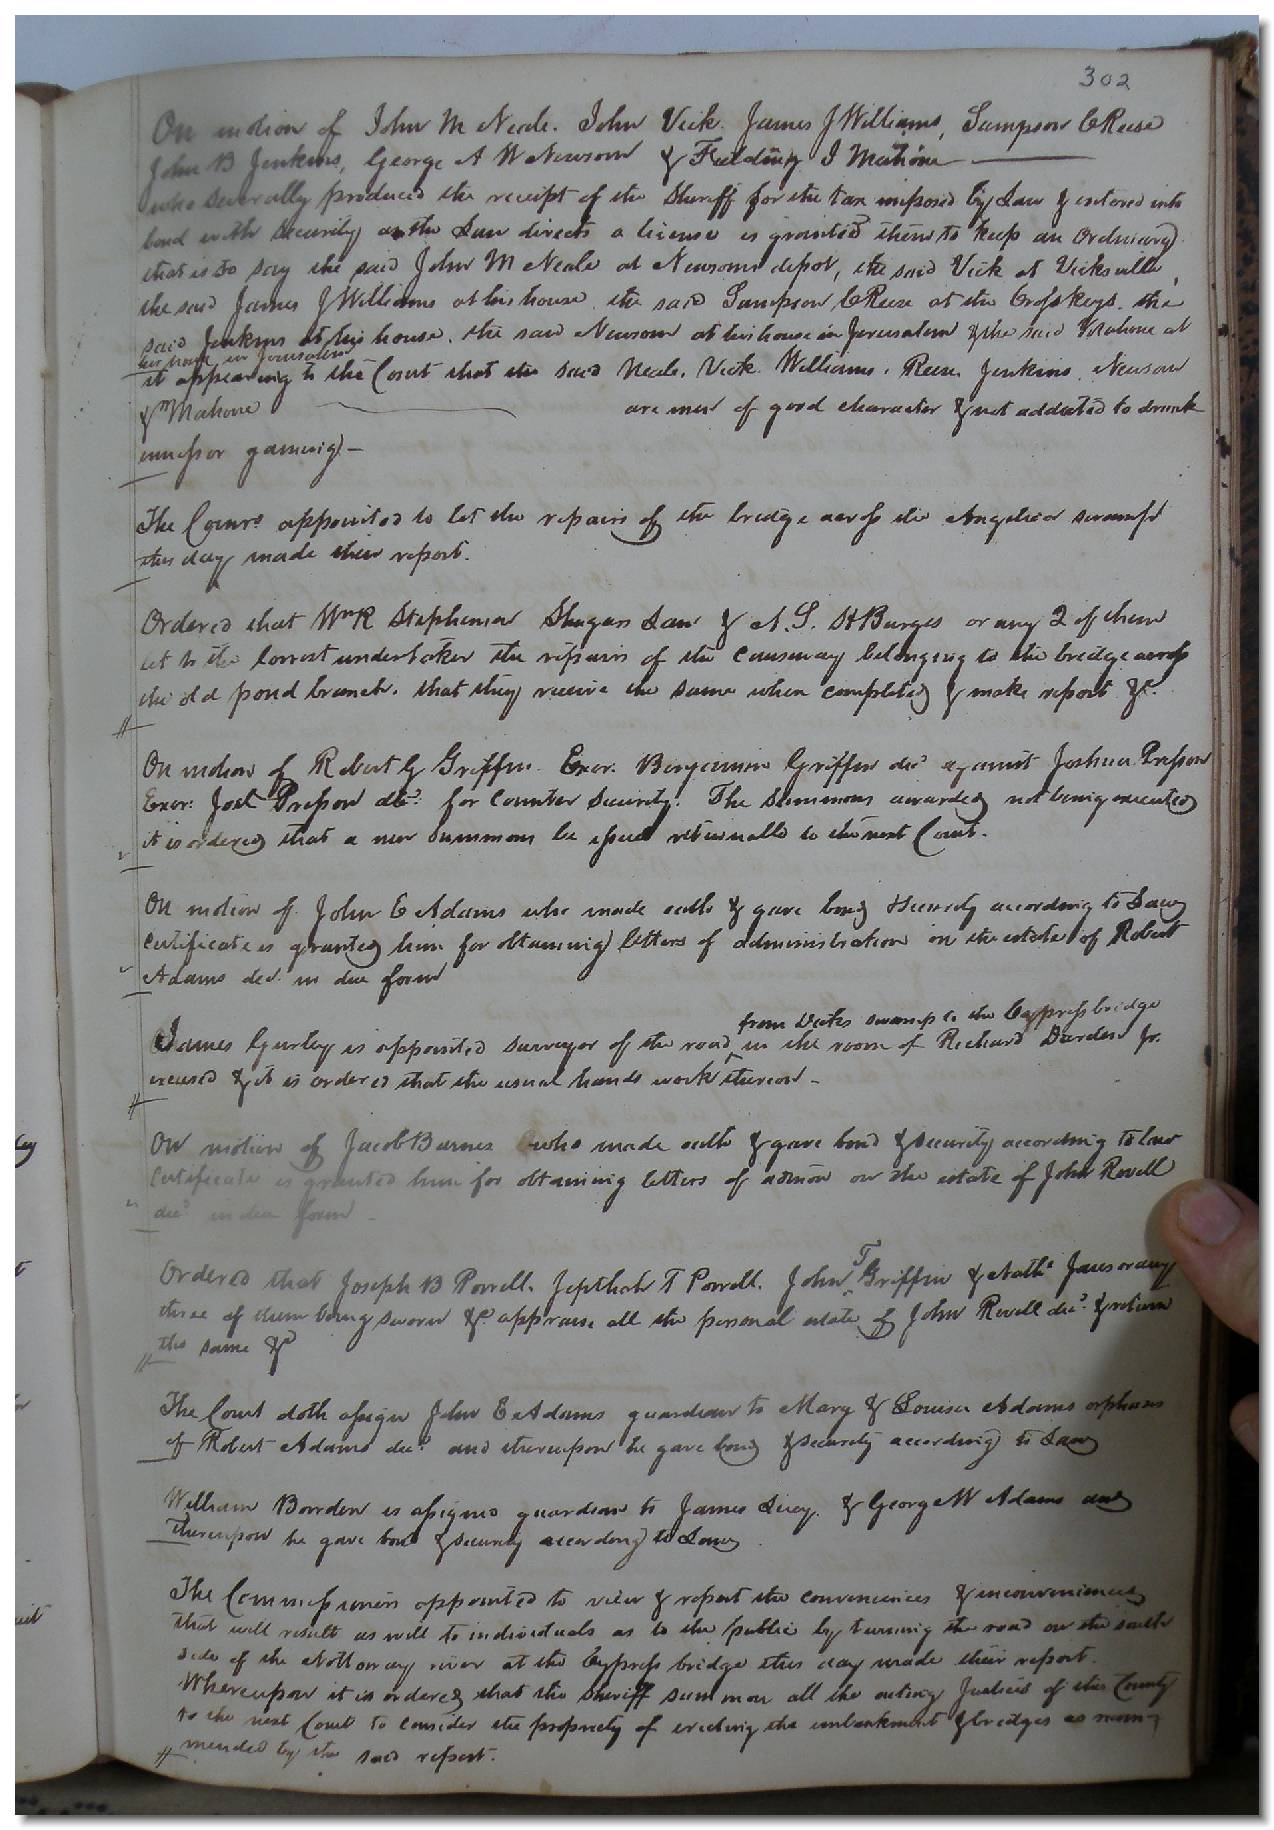 302
On motion of John M Neale. John Vick. James J Williams, Sampson C Reese
John B Jenkins, George A W Newsom & Fielding J Mahone
who severally produced the receipt of the Sheriff for the tax imposed by Law & entered into
bond with security as the Law directs a license is granted them to keep an Ordinary
that is to say the said John M Neale at Newsoms depot, the said Vick at Vicksville,
the said James J Williams at his house. the said Sampson C Reese at the Crosskeys. the
said Jenkins at his house. the said Newsom at his house in Jerusalem & the said Mahone at
his house in Jerusalem
it appearing to the Court that the said Neale. Vick. Williams. Reese. Jenkins. Newsom
& Mahone are men of good character & not addicted to drunk
enness or gaming.—
The Comrs. appointed to let the repairs of the bridge across the Angelica swamp
this day made their report.
Ordered that Wm R Stephenson Shugars Law & A. S. H Burges or any 2 of them
let to the lowest undertaker the repairs of the causeway belonging to the bridge across
the old pond branch. that they receive the same when completed & make report &c.
On motion of Robert G Griffin Exor. Benjamin Griffin decd against Joshua Presson
Exor: Joel Presson decd. for counter security. The summons awarded not being executed
it is ordered that a new summons be issued returnable to the next Court.
On motion of John E Adams who made oath & gave bond & security according to Law
certificate is granted him for obtaining letters of administration on the estate of Robert
Adams decd. in due form
from Vicks swamp to the Cypress bridge
James Gurley is appointed surveyor of the road in the room of Richard Darden Jr.
excused & it is ordered that the usual hands work thereon –
On motion of Jacob Barnes who made oath & gave bond & security according to law
Certificate is granted him for obtaining letters of admon on the estate of John Revell
decd in due form –
Ordered that Joseph B Powell. Jepthah T Powell. John T Griffin & Nathl. or any
three of them being sworn &c appraise all the personal estate of John Revell decd. & return
the same &c
The Court doth assign John E Adams guardian to Mary & Louisa Adams orphans
of Robert Adams decd. and thereupon he gave bond & security according to Law
William Bowden is assigned guardian to James & George W Adams and
thereupon he gave bond & security according to Law
The Commissioners appointed to view & report the conveniences & inconveniences
that will result as well to individuals as to the public by turning the road on the south
side of the Nottoway river at the Cypress bridge this day made their report.
Whereupon it is ordered that the sheriff summon all the acting Justices of this County
to the next Court to consider the propriety of erecting the embankment & bridges as recom-
mended by the said report.